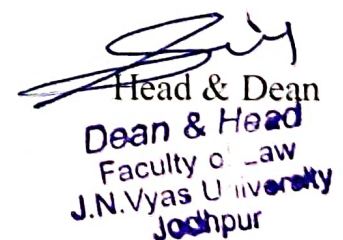 Head & Dean
Dean & Head
Faculty of Law
J.N.Vyas University
Jodhpur